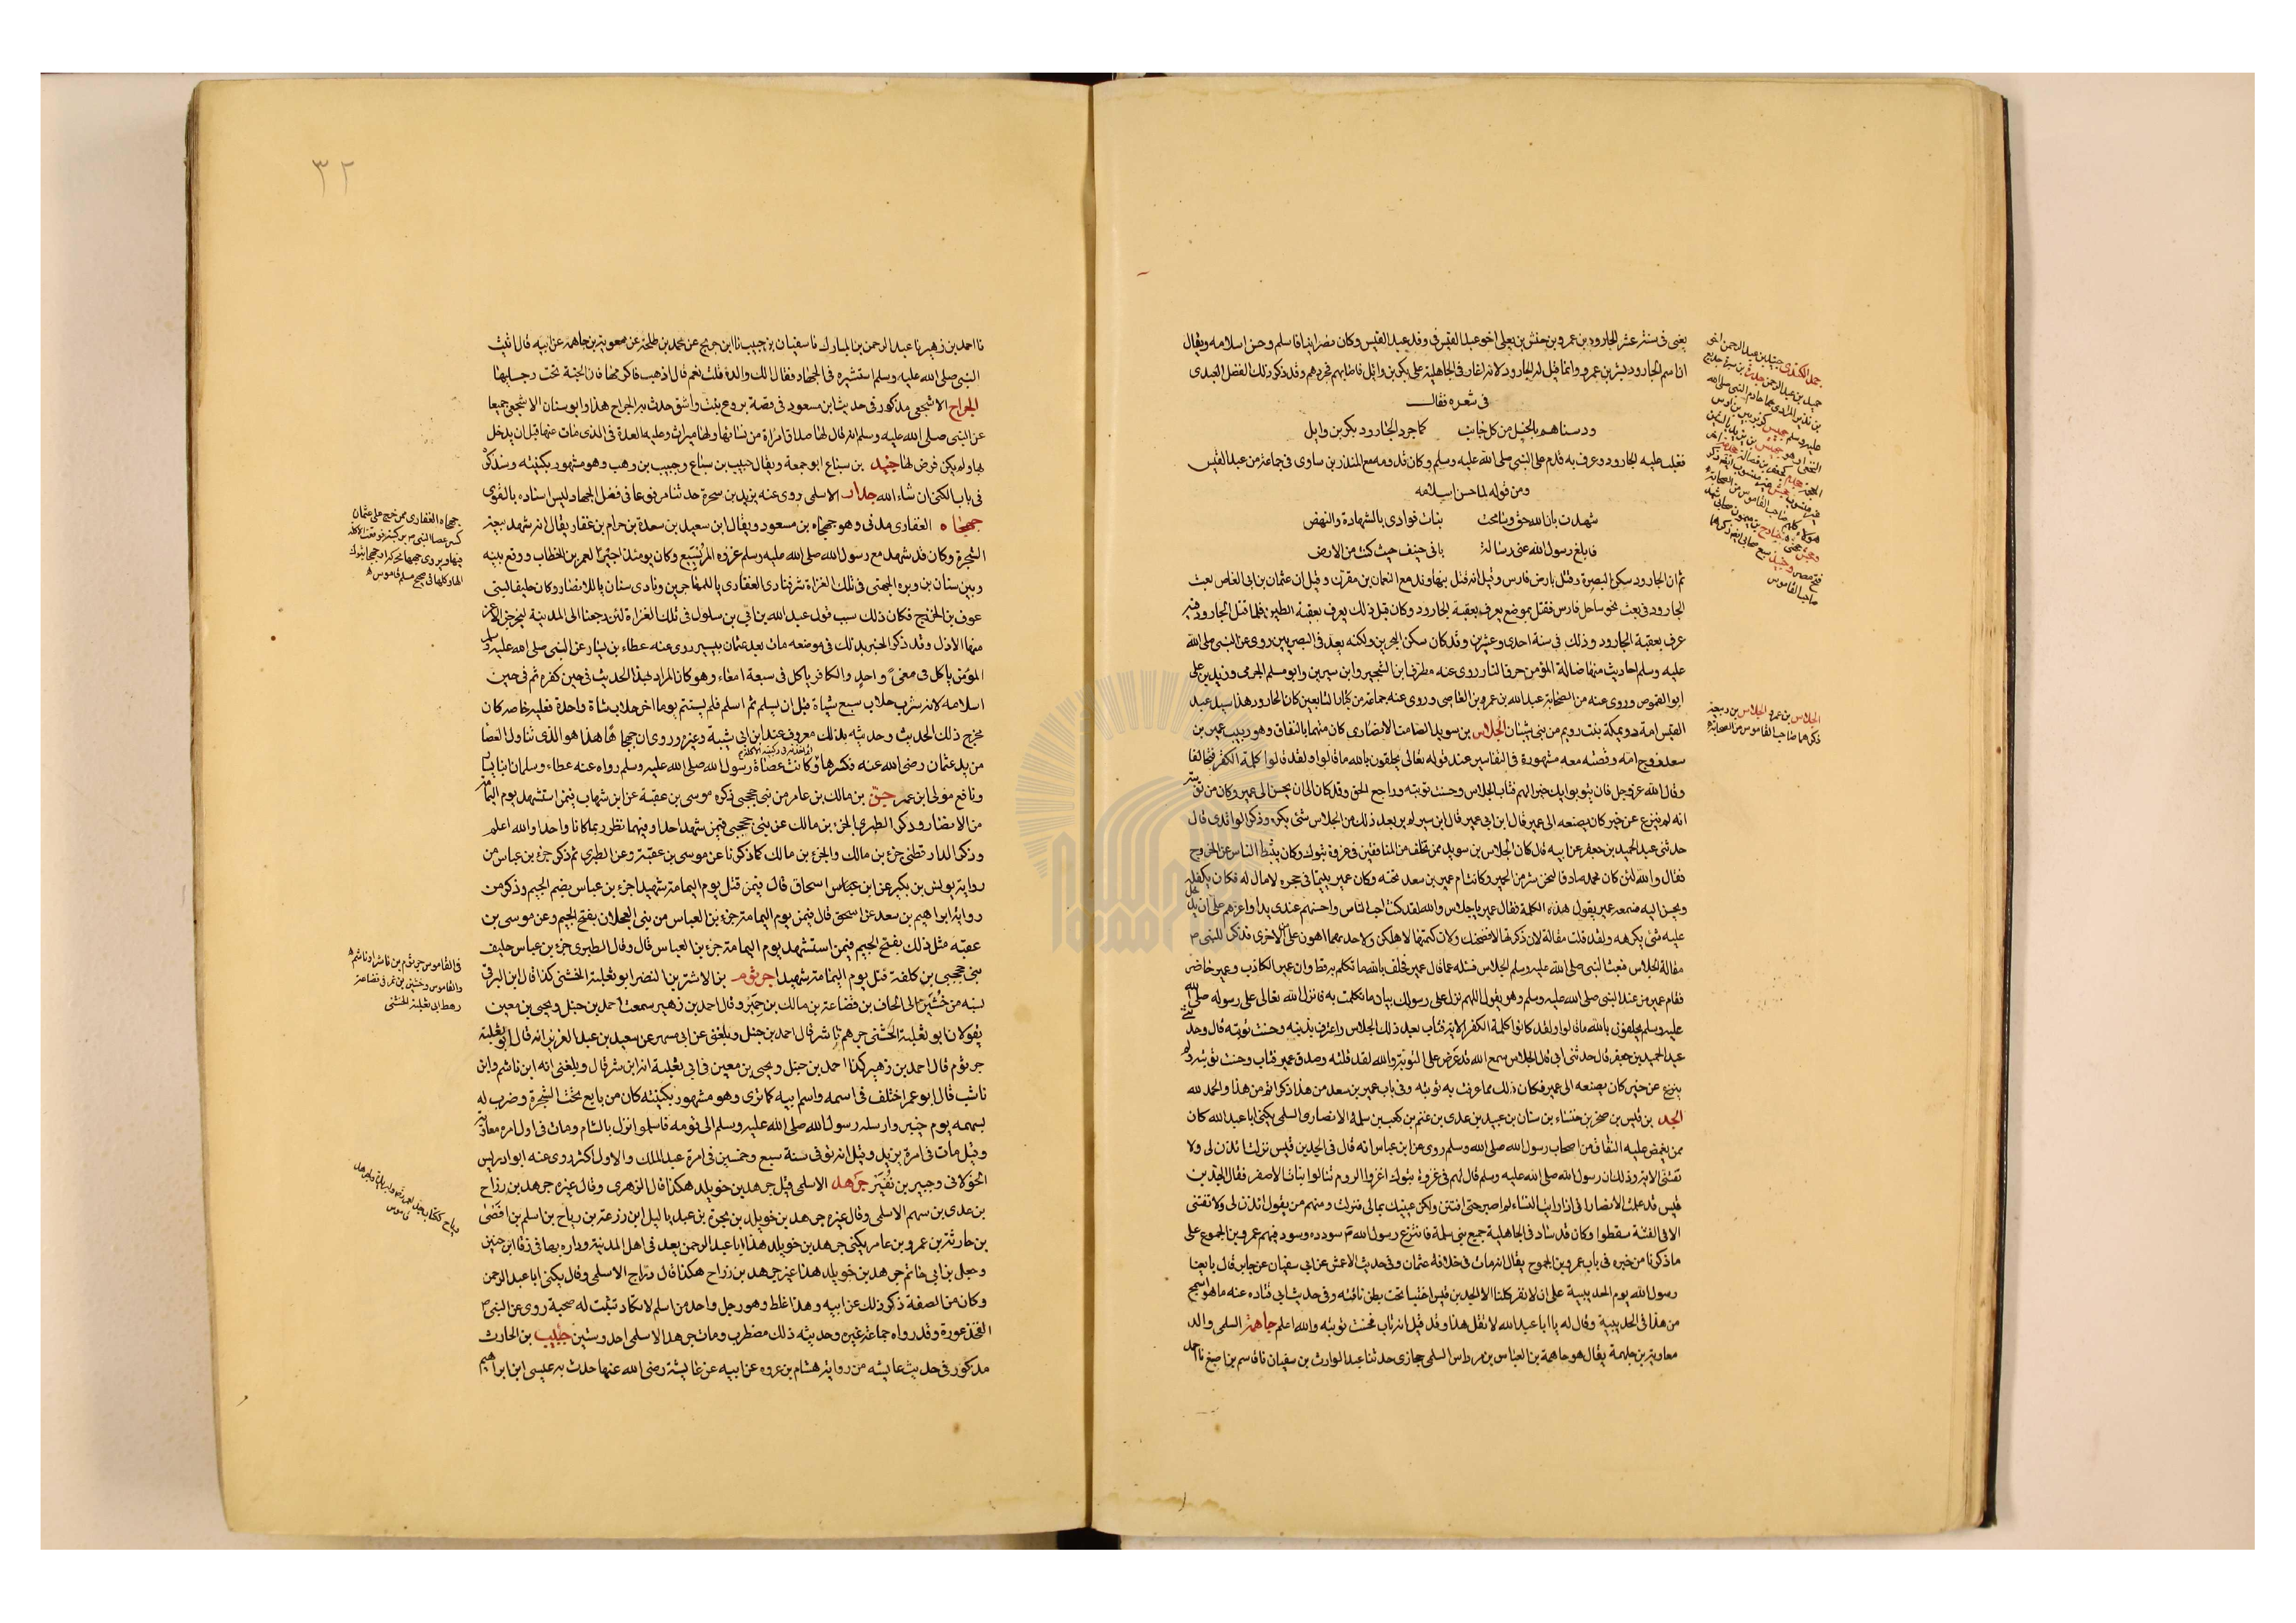 يعنى فى سنة عشر الجارود بن عمرو بن حنش بن يعلى اخو عبد القيس فى وفد عبد القيس وكان نصرانيا فاسلم وحسن اسلامه ويقال
ان اسم الجارود بشر بن عمرو وانما قيل له الجارود لانه اغار فى الجاهلية على بكر بن وايل فاصابهم فجردهم وقد ذكر ذلك المفضل العبدى
فى شعره فقال
ودسناهم بالخيل من كل جانب كما جرد الجارود بكر بن وايل
فغلب عليه الجارود وعرف به قدم على النبى صلى الله عليه وسلم وكان قدومه مع المنذر بن ساوى فى جماعة من عبد القيس
ومن قوله لما حسن اسلامه
شهدت بان الله حق وسامحت بنات فوادى بالشهادة والنهض
فابلغ رسول الله عنى رسالة بانى حنيف حيث كنت من الارض
ثم ان الجارود سكن البصرة وقتل بارض فارس وقيل انه قتل بنهاوند مع النعمان بن مقرن وقيل ان عثمان بن ابى العاص بعث
الجارود فى بعث نحو ساحل فارس فقتل بموضع يعرف بعقبة الجارود وكان قبل ذلك يعرف بعقبة الطين فلما قتل الجارود فيه
عرف بعقبة الجارود وذلك فى سنة احدى وعشرين وقد كان سكن البحرين ولكنه يعد فى البصريين روى عن النبى صلى الله
عليه وسلم احاديث منها ضالة المؤمن حرق النار روى عنه مطرف ابن الشخير وابن سيرين وابو مسلم الجرمى وزيد بن على
ابو القموص وروى عنه من الصحابة عبد الله بن عمرو بن العاصى وروى عنه جماعة من كبار التابعين كان الجارود هذا سيد عبد
القيس امه دريمكة بنت رويم من بنى شيبان الجلاس بن سويد الصامت الانصارى كان متهما بالنفاق وهو ربيب عمير بن
سعد زوج امه وقصته معه مشهورة فى التفاسير عند قوله تعالى يحلفون بالله ما قالوا ولقد قالوا كلمة الكفر فتحالفا
وقال الله عز وجل فان يتوبوا يك خيرا لهم فتاب الجلاس وحسنت توبته وراجع الحق وقد كان الى ان يحسن الى عمير وكان من توبته
انه لم ينزع عن خير كان يصنعه الى عمير قال ابن ابى عمير قال ابن سيرين لم ير بعد ذلك من الجلاس شئ يكره وذكر الواقدى قال
حدثنى عبد الحميد بن جعفر عن ابيه قال كان الجلاس بن سويد ممن تخلف من المنافقين فى غزوة تبوك وكان يثبط الناس عن الخروج
فقال والله لئن كان محمد صادقا لنحن شر من الحمير وكانت ام عمير بن سعد تحته وكان عمير يتيما فى حجره لا مال له فكان يكفله
ويحسن اليه فسمعه عمير يقول هذه الكلمة فقال عمير يا جلاس والله لقد كنت احب الناس واحسنهم عندى يدا واعزهم على ان يدخل
عليه شئ يكرهه ولقد قلت مقالة لان ذكرتها لافضحنك ولان كتمتها لاهلكن ولاحدهما اهون على من الاخرى فذكر للنبى ص
مقالة الجلاس فبعث النبى صلى الله عليه وسلم الجلاس فسئله عما قال عمير فحلف بالله ما تكلم به قط وان عمير الكاذب وعمير حاضر
فقام عمير من عند النبى صلى الله عليه وسلم وهو يقول اللهم نزل على رسولك بيان ما تكلمت به فانزل الله تعالى على رسوله صلى الله
عليه وسلم يحلفون بالله ما قالوا ولقد قالوا كلمة الكفر الاية فتاب بعد ذلك الجلاس واعترف بذنبه وحسنت توبته قال وحدثنى
عبد الحميد بن جعفر قال حدثنى ابى قال الجلاس سمع الله قد عرض على التوبة والله لقد قلته وصدق عمير فتاب وحسنت توبته ولم
ينزع عن خير كان يصنعه الى عمير فكان ذلك مما عرفت به توبته وفى باب عمير بن سعد من هذا ذكر اتم من هذا والحمد لله
الجد بن قيس بن صخر بن خنساء بن سنان بن عبيد بن عدى بن غنم بن كعب بن سلمة الانصارى السلمى يكنى ابا عبد الله كان
ممن يغمض عليه النفاق من اصحاب رسول الله صلى الله وسلم روى عن ابن عباس انه قال فى الجد بن قيس نزلت ائذن لى ولا
تفتنى الاية وذلك ان رسول الله صلى الله عليه وسلم قال لهم فى غزوة تبوك اغزوا الروم تنالوا بنات الاصفر فقال الجد بن
قيس قد علمت الانصار انى اذا رايت النساء لم اصبر حتى افتتن ولكن اعينك بمالى فنزلت ومنهم من يقول ائذن لى ولا تفتنى
الا فى الفتنة سقطوا وكان قد ساد فى الجاهلية جميع بنى سلمة فانتزع رسول الله ص سودده وسود فيهم عمرو بن الجموح على
ما ذكرنا من خبره فى باب عمرو بن الجموح يقال انه مات فى خلافة عثمان وفى حديث الاعمش عن ابى سفيان عن جابر قال بايعنا
رسول الله يوم الحديبية على ان لا نفر كلنا الا الجد بن قيس اختبا تحت بطن ناقته وفى حديث ابى قتاده عنه ما هو اسمج
من هذا فى الحديبية وقال له يا ابا عبد الله لا تقل هذا وقد قيل انه تاب فحسنت توبته والله اعلم جاهمة السلمى والد
معاوية بن جاهمة يقال هو جاهمة بن العباس بن مرداس السلمى حجازى حدثنا عبد الوارث بن سفيان نا قاسم بن اصبغ نا احمد
الجلاس بن عمرو الجلاس بن ربيعة
ذكرهما صاحب القاموس من الصحابة
٣٢
نا احمد بن زهير نا عبد الرحمن بن المبارك نا سفيان بن حبيب نا ابن جريج عن محمد بن طلحة عن معوية بن جاهمة عن ابيه قال اتيت
النبى صلى الله عليه وسلم استشيره فى الجهاد فقال الك والدة قلت نعم قال اذهب فاكرمها فان الجنة تحت رجليها
الجراح الاشجعى مذكور فى حديث ابن مسعود فى قصة بروع بنت واشق حدث به الجراح هذا وابو سنان الاشجعى جميعا
عن النبى صلى الله عليه وسلم انه قال لها صداق امراة من نسائها ولها ميراث وعليه العدة فى الذى مات عنها قبل ان يدخل
بها ولم يكن فرض لها جنيد بن سباع ابو جمعة ويقال حبيب بن سباع وجبيب بن وهب وهو مشهور بكنيته وسنذكره
فى باب الكنى ان شاء الله جدار الاسلمى روى عنه يزيد بن سحرة حدثنا مرفوعا فى فضل الجهاد ليس اسناده بالقوى
جهجاه الغفارى مدنى وهو جهجاه بن مسعود ويقال ابن سعيد بن سعدة بن حرام بن غفار يقال انه شهد بيعة
الشجرة وكان قد شهد مع رسول الله صلى الله عليه وسلم غزوه المريسيع وكان يومئذ اجيرا لعمر بن الخطاب ووقع بينه
وبين سنان بن وبره الجهنى فى تلك الغزاة شر فنادى الغفارى يا للمهاجرين ونادى سنان يا للانصار وكان حليفا لبنى
عوف بن الخزرج فكان ذلك سبب قول عبد الله بن ابى بن سلول فى تلك الغزاة لئن رجعنا الى المدينة ليخرجن الاعز
منها الاذل وقد ذكر الخبر بذلك فى موضعه مات بعد عثمان بيسير روى عنه عطاء بن يسار عن النبى صلى الله عليه وسلم
المؤمن ياكل فى معىً واحدٍ والكافر ياكل فى سبعة امعاء وهو كان المراد بهذا الحديث فى حين كفره ثم فى حين
اسلامه لانه شرب حلاب سبع شياة قبل ان يسلم ثم اسلم فلم يستتم يوما اخر حلاب شاة واحدة فعليه خاصه كان
مخرج ذلك الحديث وحديثه بذلك معروف عند ابن ابى شيبة وغيره وروى ان جهجاها هذا هو الذى تناول العصا
من يد عثمان رضى الله عنه فكسرها وكانت عصاة رسول الله صلى الله عليه وسلم رواه عنه عطاء وسلمان ابنا يسار
ونافع مولى ابن عمر جزؤ بن مالك بن عامر من بنى جحجبى ذكره موسى بن عقبة عن ابن شهاب فيمن استشهد يوم اليمامة
من الانصار وذكر الطبرى الجزء بن مالك عن بنى جحجبى فيمن شهد احدا وفيهما نظر ربما كانا واحدا والله اعلم
وذكر الدارقطنى جزء بن مالك والجزء بن مالك كما ذكرنا عن موسى بن عقبة وعن الطبرى ثم ذكر جزء بن عباس من
رواية يونس بن بكير عن ابن اسحاق قال فيمن قتل يوم اليمامة شهيدا جزء بن عباس بضم الجيم وذكر من
رواية ابراهيم بن سعد عن ابن اسحق قال فيمن يوم اليمامة جزء بن العباس من بنى العجلان بفتح الجيم وعن موسى بن
عقبه مثل ذلك بفتح الجيم فيمن استشهد يوم اليمامة جزء بن العباس قال وقال الطبرى جزء بن عباس حليف
بنى جحجبى بن كلفة قتل يوم اليمامة شهيدا جرثوم بن الاشتر بن النضر ابو ثعلبة الخشنى كذا قال ابن البرقى
نسبه من خشين الى الحاف بن قضاعة بن مالك بن حمير وقال احمد بن زهير سمعت احمد بن حنبل ويحيى بن معين
يقولان ابو ثعلبة الخشنى جرهم ناشر قال احمد بن حنبل وبلغنى عن ابى مسهر عن سعيد بن عبد العزيز انه قال ابو ثعلبة
جرثوم قال احمد بن زهير كذا احمد بن حنبل ويحيى بن معين فى ابى ثعلبة انه ابن شر قال وبلغنى انه ابن ناشم وابن
ناشب قال ابو عمر اختلف فى اسمه واسم ابيه كما ترى وهو مشهور بكنيته كان من بايع تحت الشجرة وضرب له
بسهمه يوم حنين وارسله رسول الله صلى الله عليه وسلم الى قومه فاسلموا نزل بالشام ومات فى اول امره معاوية
وقيل مات فى امرة يزيد وقيل انه توفى سنة سبع وخمسين فى امرة عبد الملك والاول اكثر روى عنه ابو ادريس
الخولانى وجبير بن نفير جرهد الاسلمى قيل جرهد بن خويلد هكذا قال الزهرى وقال غيره جرهد بن رزاح
بن عدى بن سهم الاسلمى وقال غيره جرهد بن خويلد بن بجرة بن عبد ياليل ابن زرعة بن رياح بن اسلم بن افصى
بن حارثة بن عمرو بن عامر يكنى جرهد بن خويلد هذا ابا عبد الرحمن يعد فى اهل المدينة وداره بها فى زقاق ابن حنين
وجعل بن ابى حاتم جرهد بن خويلد هذا غير جرهد بن رزاح هكذا قال دراج الاسلمى وقال يكنى ابا عبد الرحمن
وكان من الصفة ذكر ذلك عن ابيه وهذا غلط وهو رجل واحد من اسلم لا تكاد تثبت له صحبة روى عن النبى ص
الفخذ عورة وقد رواه جماعة غيره وحديثه ذلك مضطرب ومات جرهد الاسلمى احد وستين جليبيب بن الحارث
مذكور فى حديث عايشه من رواية هشام بن عروه عن ابيه عن عايشة رضى الله عنها حدث به عيسى ابن ابراهيم
جهجاه الغفارى ممن خرج على عثمان